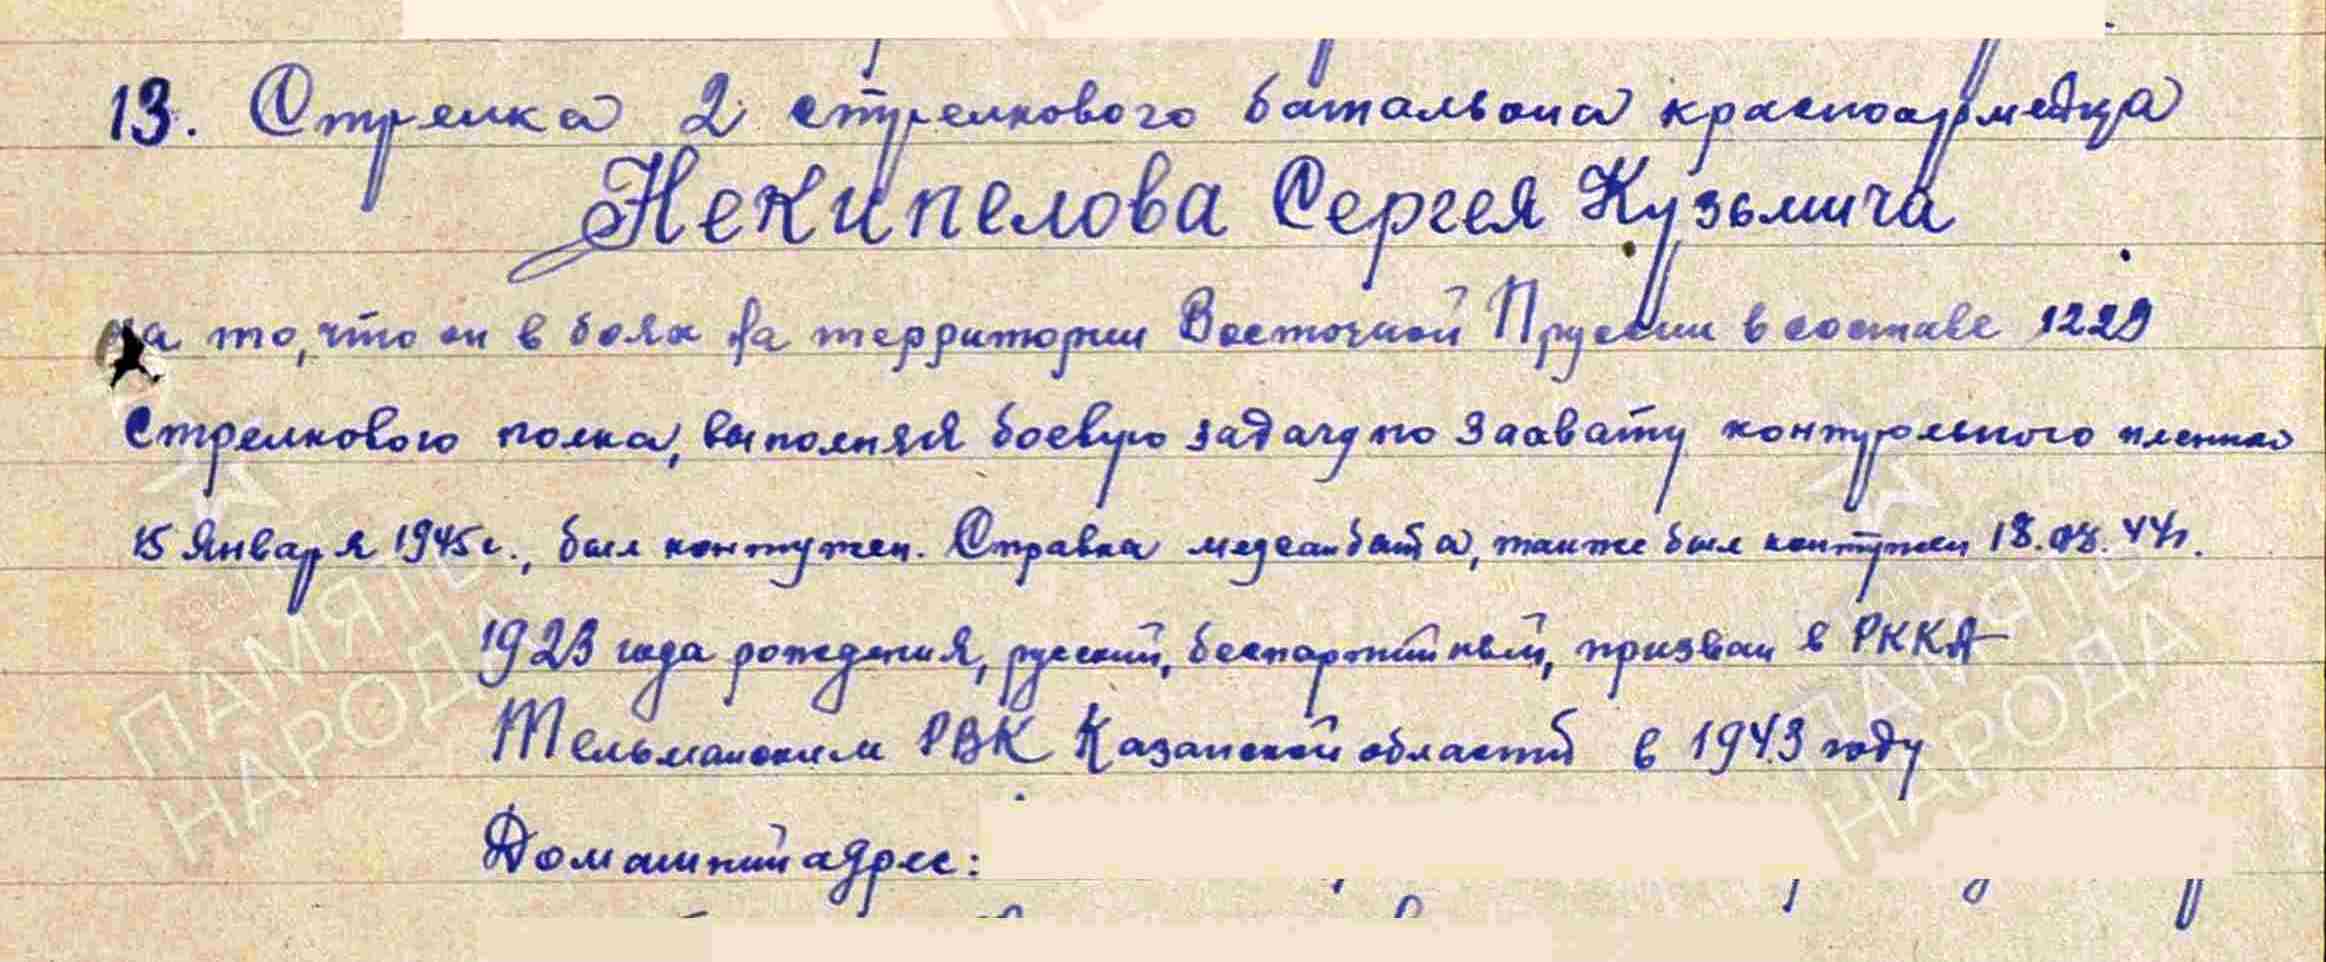 13. Стрелка 2 стрелкового батальона красноармейца
Некипелова Сергея Кузьмича
за то, что он в боях на территории Восточной Пруссии в составе 1229
Стрелкового полка, выполняя боевую задачу по захвату контрольного пленного
15 Января 1945 г., был контужен. Справка медсанбата, также был контужен 18.08.44г.
1923 года рождения, русский, беспартийный, призван в РККА
Тельманским РВК Казанской область в 1943 году
Домашний адрес:
ПАМЯТЬ
НАРОДА
ПАМЯТЬ
НАРОДА